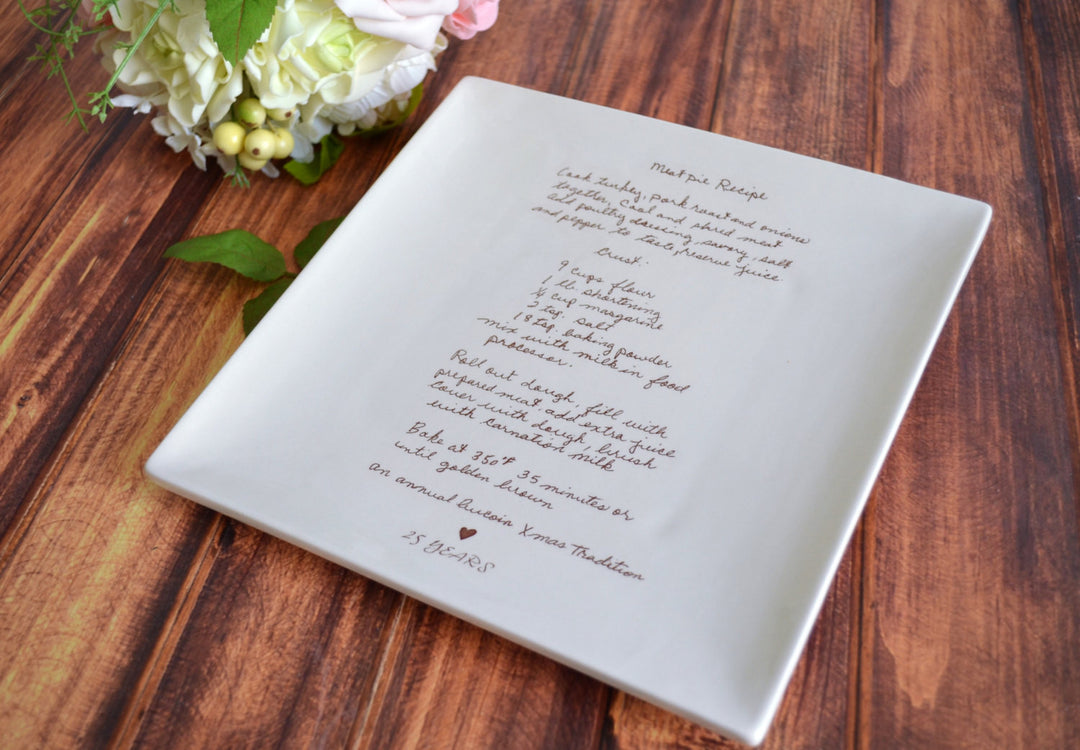 Meat pie Recipe
Cook turkey, pork roast and onions
together, cool and shred meat
add poultry dressing, savory, salt
and pepper to taste, reserve juice.
Crust:
9 cups flour
1 lb. shortening
1/4 cup margarine
2 tsp. salt
18 tsp. baking powder
mix with milk in food
processor.
Roll out dough, fill with
prepared meat. add extra juice
cover with dough, brush
with carnation milk
Bake at 350°F 35 minutes or
until golden brown
an annual Aucoin Xmas Tradition
25 YEARS